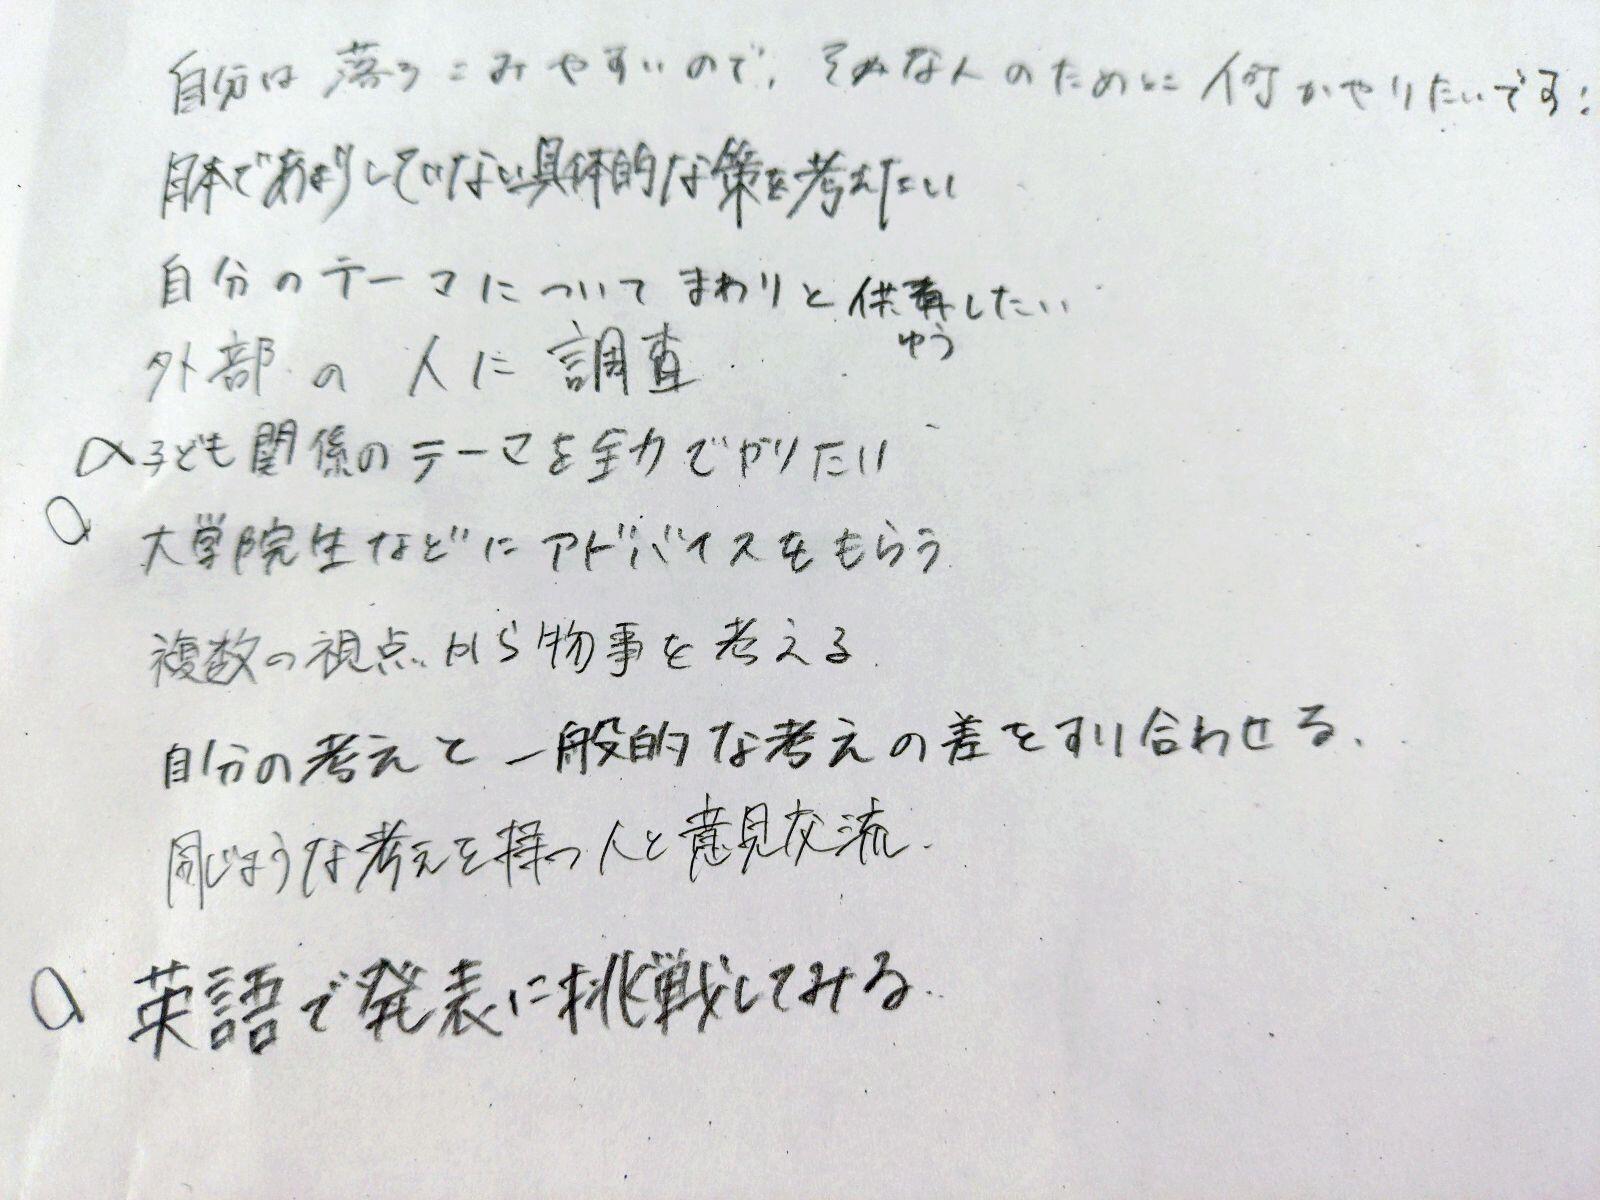 自分は落ちこみやすいので、そんな人のために何かやりたいです!
日本であまりしていない具体的な策を考えたい
自分のテーマについてまわりと供有したい
ゆう
外部の人に調査
子ども関係のテーマを全力でやりたい
大学院生などにアドバイスをもらう
複数の視点から物事を考える
自分の考えと一般的な考えの差をすり合わせる、
同じような考えを持つ人と意見交流
英語で発表に挑戦してみる